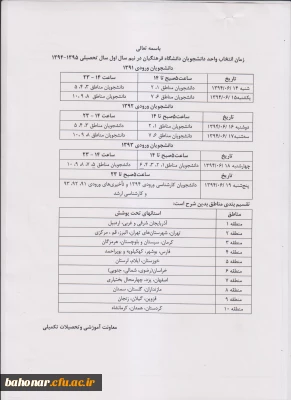 باسمه تعالی
زمان انتخاب واحد دانشجویان دانشگاه فرهنگیان در نیم سال اول سال تحصیلی ۱۳۹۵-۱۳۹۴
دانشجویان ورودی ۱۳۹۱
تاریخ ساعت ۵صبح تا ۱۴ ساعت ۱۴ - ۲۳
شنبه ۱۳۹۴/۰۶/۱۴ دانشجویان مناطق ۱، ۲ دانشجویان مناطق ۳، ۴، ۵
یکشنبه ۱۳۹۴/۰۶/۱۵ دانشجویان مناطق ۶، ۷ دانشجویان مناطق ۸، ۹، ۱۰
دانشجویان ورودی ۱۳۹۲
تاریخ ساعت ۵صبح تا ۱۴ ساعت ۱۴ - ۲۳
دوشنبه ۱۳۹۴/۰۶/۱۶ دانشجویان مناطق ۱، ۲ دانشجویان مناطق ۳، ۴، ۵
سه‌شنبه ۱۳۹۴/۰۶/۱۷ دانشجویان مناطق ۶، ۷ دانشجویان مناطق ۸، ۹، ۱۰
دانشجویان ورودی ۱۳۹۳
تاریخ ساعت ۵صبح تا ۱۴ ساعت ۱۴ - ۲۳
چهارشنبه ۱۳۹۴/۰۶/۱۸ دانشجویان مناطق ۱، ۲، ۳، ۴ دانشجویان مناطق ۵، ۸، ۹، ۱۰
ساعت ۵صبح تا ۲۳
پنج‌شنبه ۱۳۹۴/۰۶/۱۹ دانشجویان کارشناسی ورودی ۱۳۹۴ و تأخیری‌های ورودی ۹۱، ۹۲، ۹۳
و کارشناسی ارشد
تقسیم بندی مناطق بدین شرح است:
مناطق استانهای تحت پوشش
منطقه ۱ آذربایجان شرقی و غربی، اردبیل
منطقه ۲ تهران، شهرستان‌های تهران، البرز، قم، مرکزی
منطقه ۳ کرمان، سیستان و بلوچستان، هرمزگان
منطقه ۴ فارس، بوشهر، کهگیلویه و بویراحمد
منطقه ۵ خوزستان، ایلام، لرستان
منطقه ۶ خراسان(رضوی، شمالی، جنوبی)
منطقه ۷ اصفهان، یزد، چهارمحال بختیاری
منطقه ۸ مازندران، گلستان، سمنان
منطقه ۹ قزوین، گیلان، زنجان
منطقه ۱۰ کردستان، همدان، کرمانشاه
معاونت آموزشی وتحصیلات تکمیلی
bahonar.cfu.ac.ir